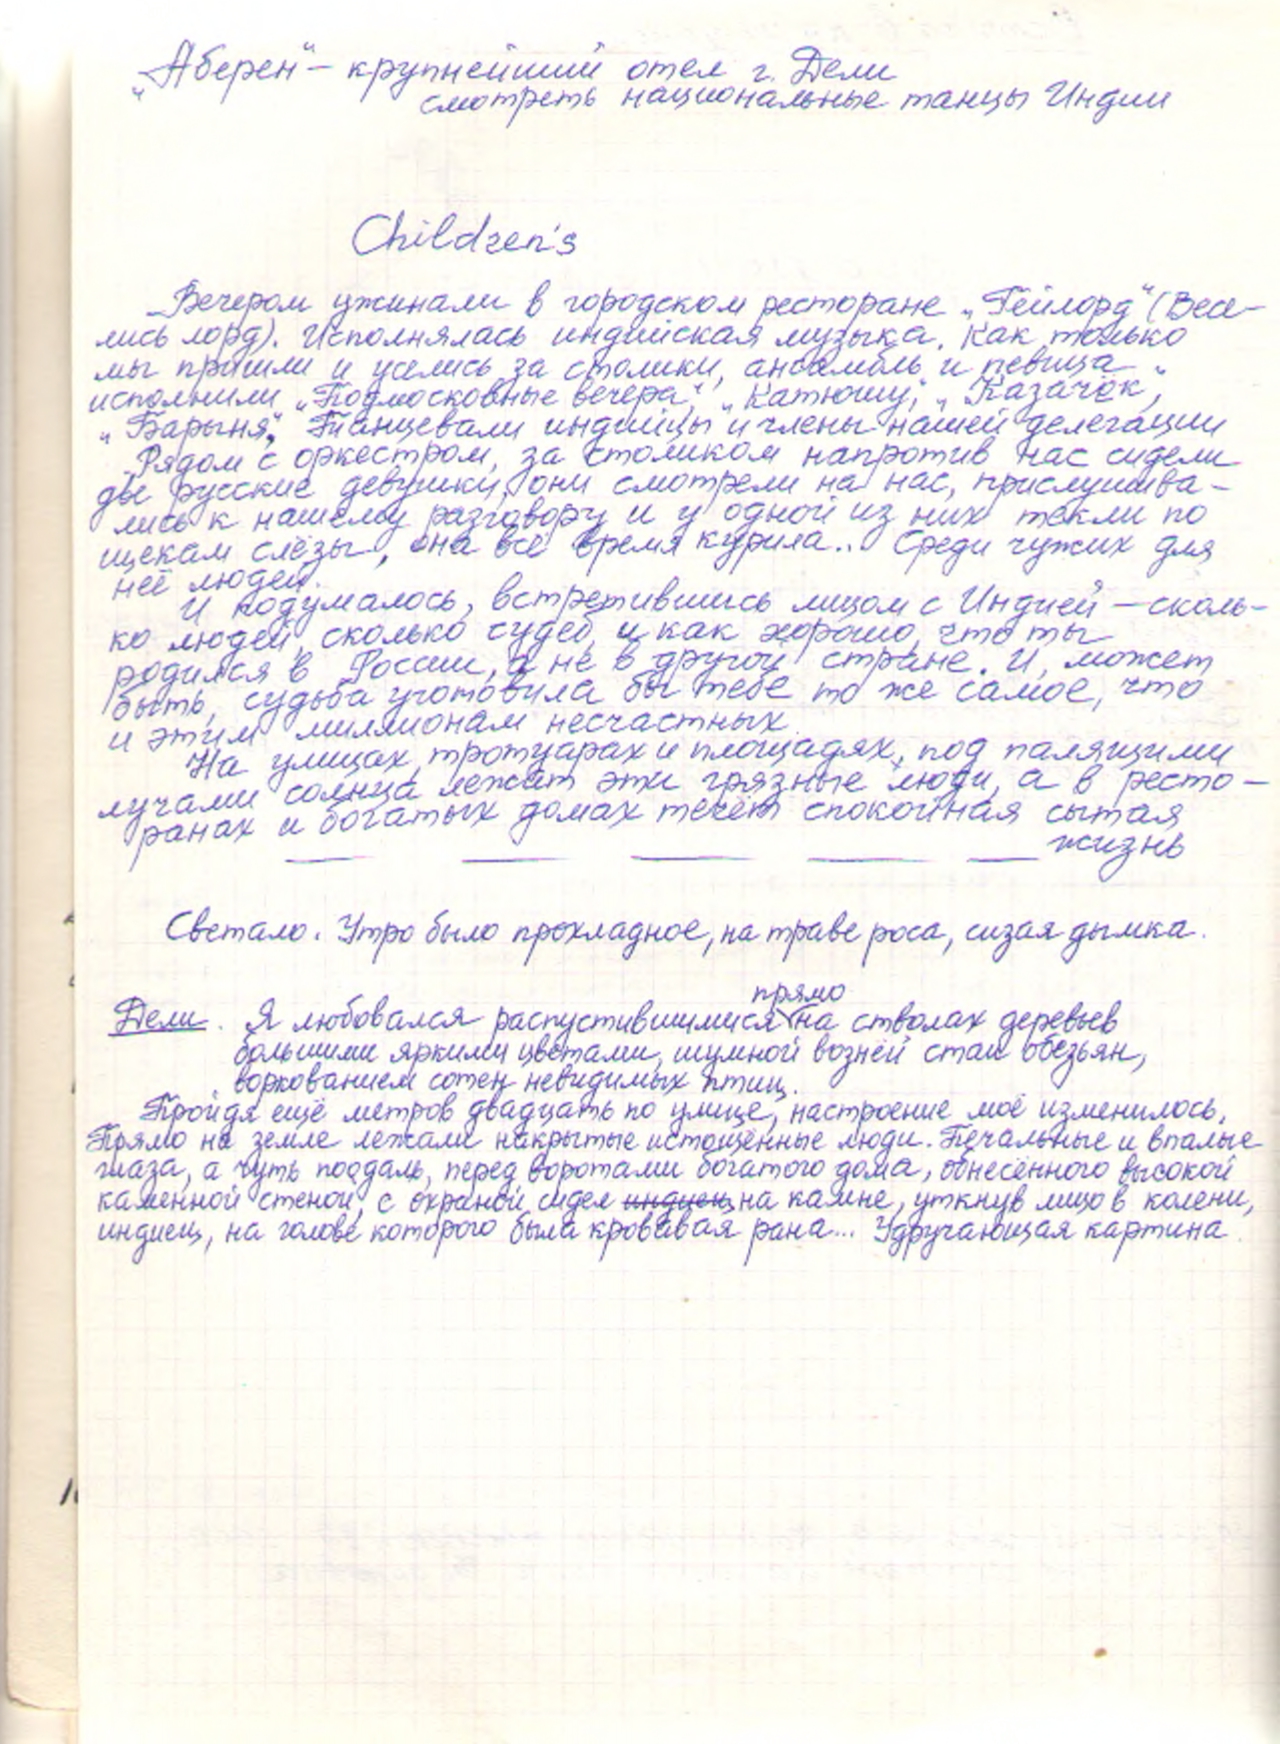 „Аберен“ – крупнейший отел г. Дели
смотреть национальные танцы Индии
Children's
Вечером ужинали в городском ресторане „Гейлорд“ (Весе-
лись лорд). Исполнялась индийская музыка. Как только
мы пришли и уселись за столики, ансамбль и певица
исполнили „Подмосковные вечера“, „Катюшу“, „Казачёк“,
„Барыня“. Танцевали индийцы и члены нашей делегации
Рядом с оркестром, за столиком напротив нас сидели
две русские девушки, они смотрели на нас, прислушива-
лись к нашему разговору и у одной из них текли по
щекам слёзы, она всё время курила.. Среди чужих для
неё людей.
И подумалось, встретившись лицом с Индией – сколь-
ко людей, сколько судеб, и как хорошо, что ты
родился в России, а не в другой стране. И, может
быть, судьба уготовила бы тебе то же самое, что
и этим миллионам несчастных.
На улицах, тротуарах и площадях, под палящими
лучами солнца лежат эти грязные люди, а в ресто-
ранах и богатых домах течёт спокойная сытая
жизнь
Светало. Утро было прохладное, на траве роса, сизая дымка.
прямо
Дели. Я любовался распустившимися на стволах деревьев
большими яркими цветами, шумной вознёй стаи обезьян,
воркованием сотен невидимых птиц.
Пройдя ещё метров двадцать по улице, настроение моё изменилось.
Прямо на земле лежали накрытые истощённые люди. Печальные и впалые
глаза, а чуть поодаль, перед воротами богатого дома, обнесённого высокой
каменной стеной, с охраной сидел индиец на камне, уткнув лицо в колени,
индиец, на голове которого была кровавая рана... Удручающая картина.